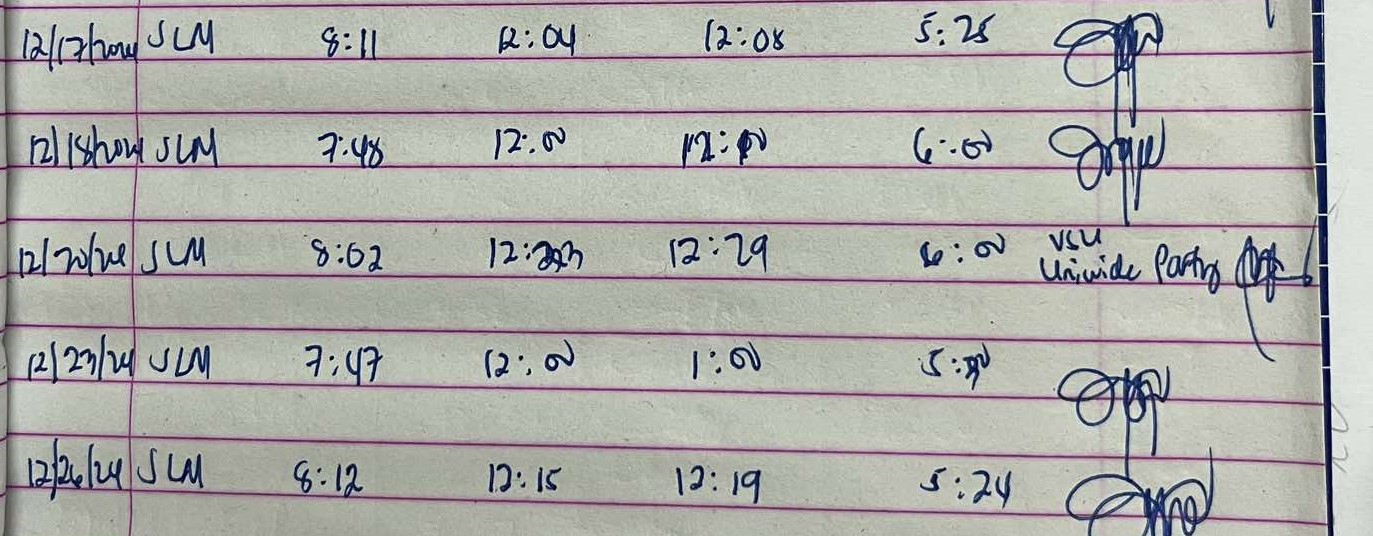 12/17/2024 SLM 8:11 12:04 12:08 5:25
12/18/2024 SLM 7:48 12:00 6:00
12/20/24 SLM 8:02 12:29 6:00 VSU
Uniwide Party
12/23/24 SLM 7:47 12:00 1:00
12/26/24 SLM 8:12 12:15 12:19 5:24